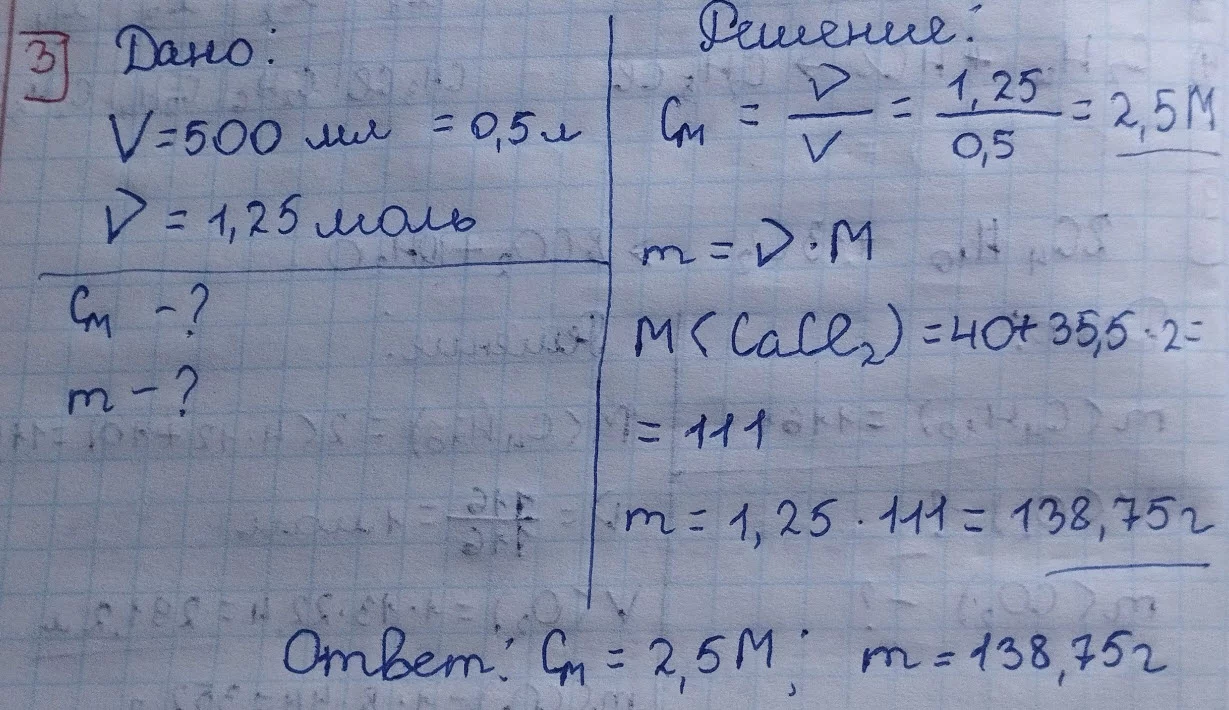 3 Дано:
V = 500 мл = 0,5 л
ν = 1,25 моль
Cм - ?
m - ?
Решение:
Cм = ν / V = 1,25 / 0,5 = 2,5 М
m = ν · M
M (CaCl₂) = 40 + 35,5 · 2 =
= 111
m = 1,25 · 111 = 138,75 г
Ответ: Cм = 2,5 М; m = 138,75 г